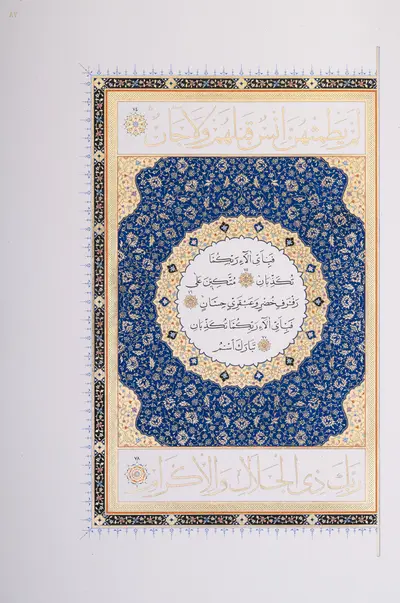 لَمْ يَطْمِثْهُنَّ إِنسٌ قَبْلَهُمْ وَلَا جَانٌّ ٧٤
فَبِأَيِّ آلَاءِ رَبِّكُمَا
تُكَذِّبَانِ ٧٥ مُتَّكِئِينَ عَلَىٰ
رَفْرَفٍ خُضْرٍ وَعَبْقَرِيٍّ حِسَانٍ ٧٦
فَبِأَيِّ آلَاءِ رَبِّكُمَا تُكَذِّبَانِ
٧٧ تَبَارَكَ ٱسْمُ
رَبِّكَ ذِي الْجَلَالِ وَالْإِكْرَامِ ٧٨